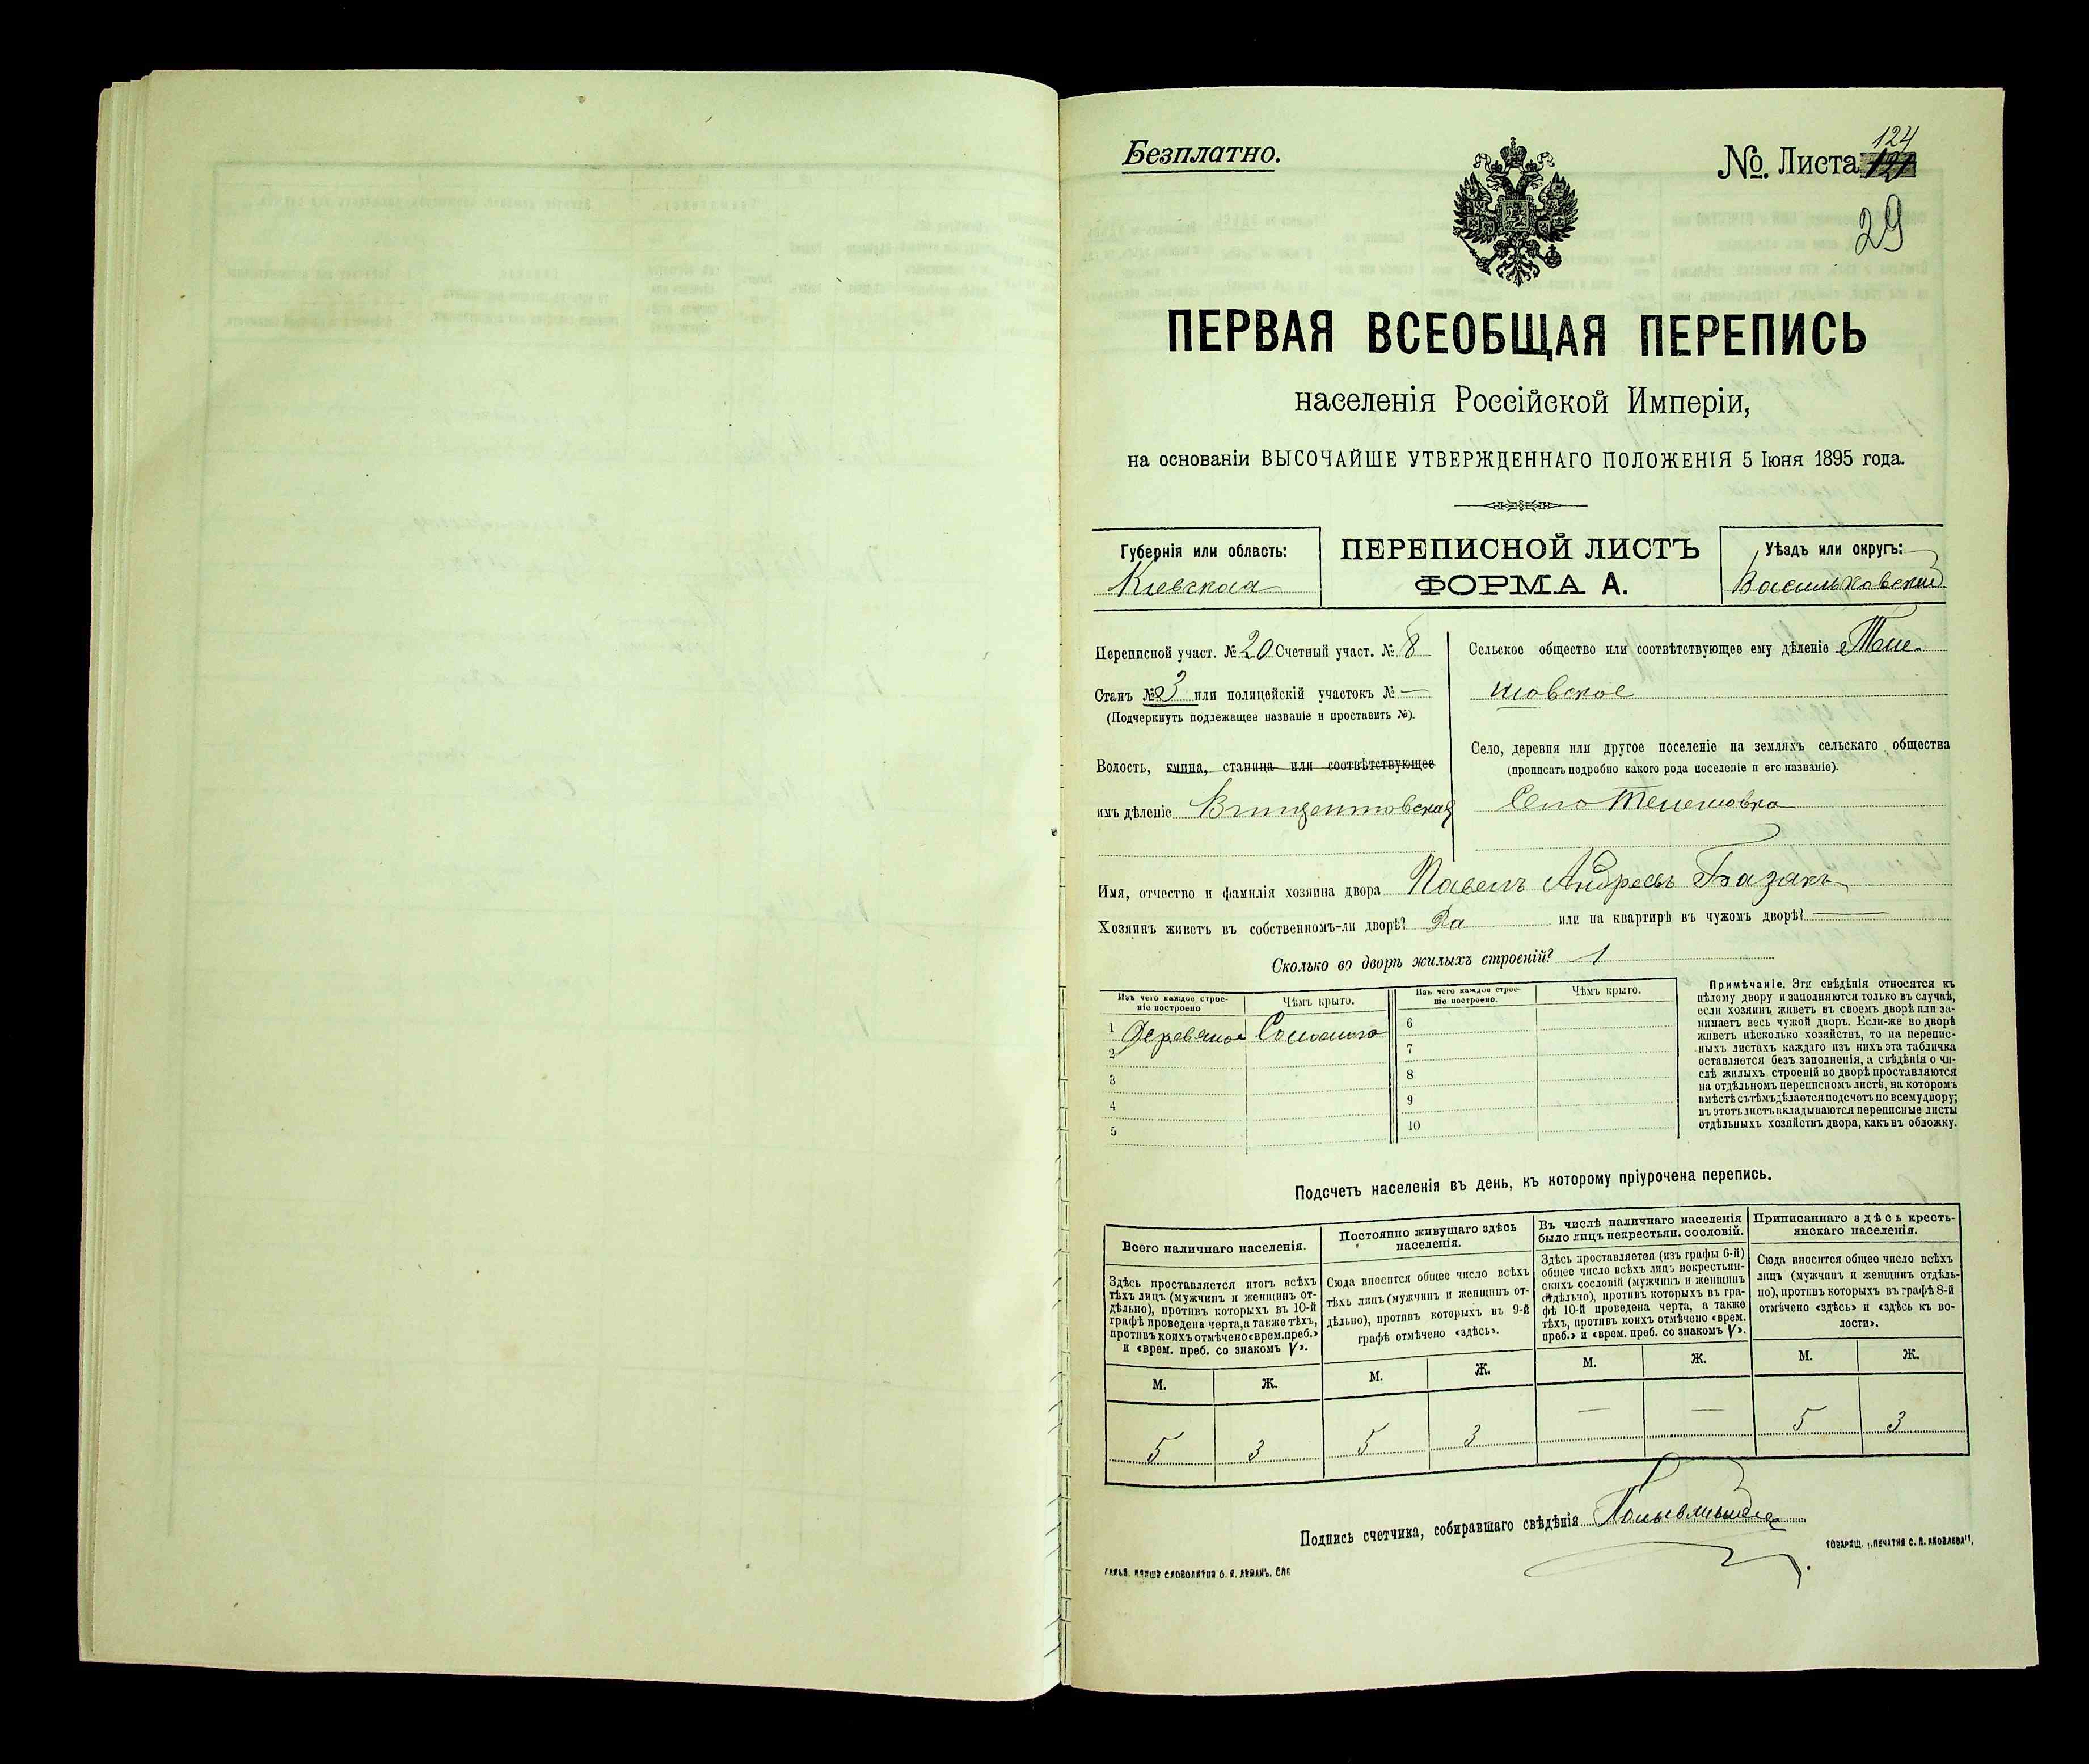 Безплатно.
№. Листа 124
29
ПЕРВАЯ ВСЕОБЩАЯ ПЕРЕПИСЬ
населенія Россійской Имперіи,
на основаніи ВЫСОЧАЙШЕ УТВЕРЖДЕННАГО ПОЛОЖЕНІЯ 5 Іюня 1895 года.
Губернія или область:
Кіевская
ПЕРЕПИСНОЙ ЛИСТЪ
ФОРМА А.
Уѣздъ или округъ:
Васильковский
Переписной участ. № 20 Счетный участ. № 8
Станъ № 3 или полицейскій участокъ № —
(Подчеркнуть подлежащее названіе и проставить №).
Волость, гмина, станица или соотвѣтствующее
имъ дѣленіе Винцентовская
Сельское общество или соотвѣтствующее ему дѣленіе Теле
шовское
Село, деревня или другое поселеніе на земляхъ сельскаго общества
(прописать подробно какого рода поселеніе и его названіе).
Село Телешовка
Имя, отчество и фамилія хозяина двора Павелъ Андреевъ Базакъ
Хозяинъ живетъ въ собственномъ-ли дворѣ? Да или на квартирѣ въ чужомъ дворѣ? —
Сколько во дворѣ жилыхъ строеній? 1
Изъ чего каждое строе-
ніе построено
Чѣмъ крыто.
Изъ чего каждое строе-
ніе построено.
Чѣмъ крыто.
1 Деревяное Соломою
2
3
4
5
6
7
8
9
10
Примѣчаніе. Эти свѣдѣнія относятся къ
цѣлому двору и заполняются только въ случаѣ,
если хозяинъ живетъ въ своемъ дворѣ или за-
нимаетъ весь чужой дворъ. Если-же во дворѣ
живетъ нѣсколько хозяйствъ, то на перепис-
ныхъ листахъ каждаго изъ нихъ эта табличка
оставляется безъ заполненія, а свѣдѣнія о чи-
слѣ жилыхъ строеній во дворѣ проставляются
на отдѣльномъ переписномъ листѣ, на которомъ
вмѣстѣ съ тѣмъ дѣлается подсчетъ по всему двору;
въ этотъ листъ вкладываются переписные листы
отдѣльныхъ хозяйствъ двора, какъ въ обложку.
Подсчетъ населенія въ день, къ которому пріурочена перепись.
Всего наличнаго населенія.
Здѣсь проставляется итогъ всѣхъ
тѣхъ лицъ (мужчинъ и женщинъ от-
дѣльно), противъ которыхъ въ 10-й
графѣ проведена черта, а также тѣхъ,
противъ коихъ отмѣчено «врем. преб.»
и «врем. преб. со знакомъ V».
М. Ж.
5 3
Постоянно живущаго здѣсь
населенія.
Сюда вносится общее число всѣхъ
тѣхъ лицъ (мужчинъ и женщинъ от-
дѣльно), противъ которыхъ въ 9-й
графѣ отмѣчено «здѣсь».
М. Ж.
5 3
Въ числѣ наличнаго населенія
было лицъ некрестьян. сословій.
Здѣсь проставляется (изъ графы 6-й)
общее число всѣхъ лицъ некрестьян-
скихъ сословій (мужчинъ и женщинъ
отдѣльно), противъ которыхъ въ гра-
фѣ 10-й проведена черта, а также
тѣхъ, противъ коихъ отмѣчено «врем.
преб.» и «врем. преб. со знакомъ V».
М. Ж.
— —
Приписаннаго здѣсь кресть-
янскаго населенія.
Сюда вносится общее число всѣхъ
лицъ (мужчинъ и женщинъ отдѣль-
но), противъ которыхъ въ графѣ 8-й
отмѣчено «здѣсь» и «здѣсь къ во-
лости».
М. Ж.
5 3
Подпись счетчика, собиравшаго свѣдѣнія
ТОВАРИЩ. „ПЕЧАТНЯ С. П. ЯКОВЛЕВА“,
СЛОВОЛИТНЯ О. И. ЛЕМАНЪ. СПб